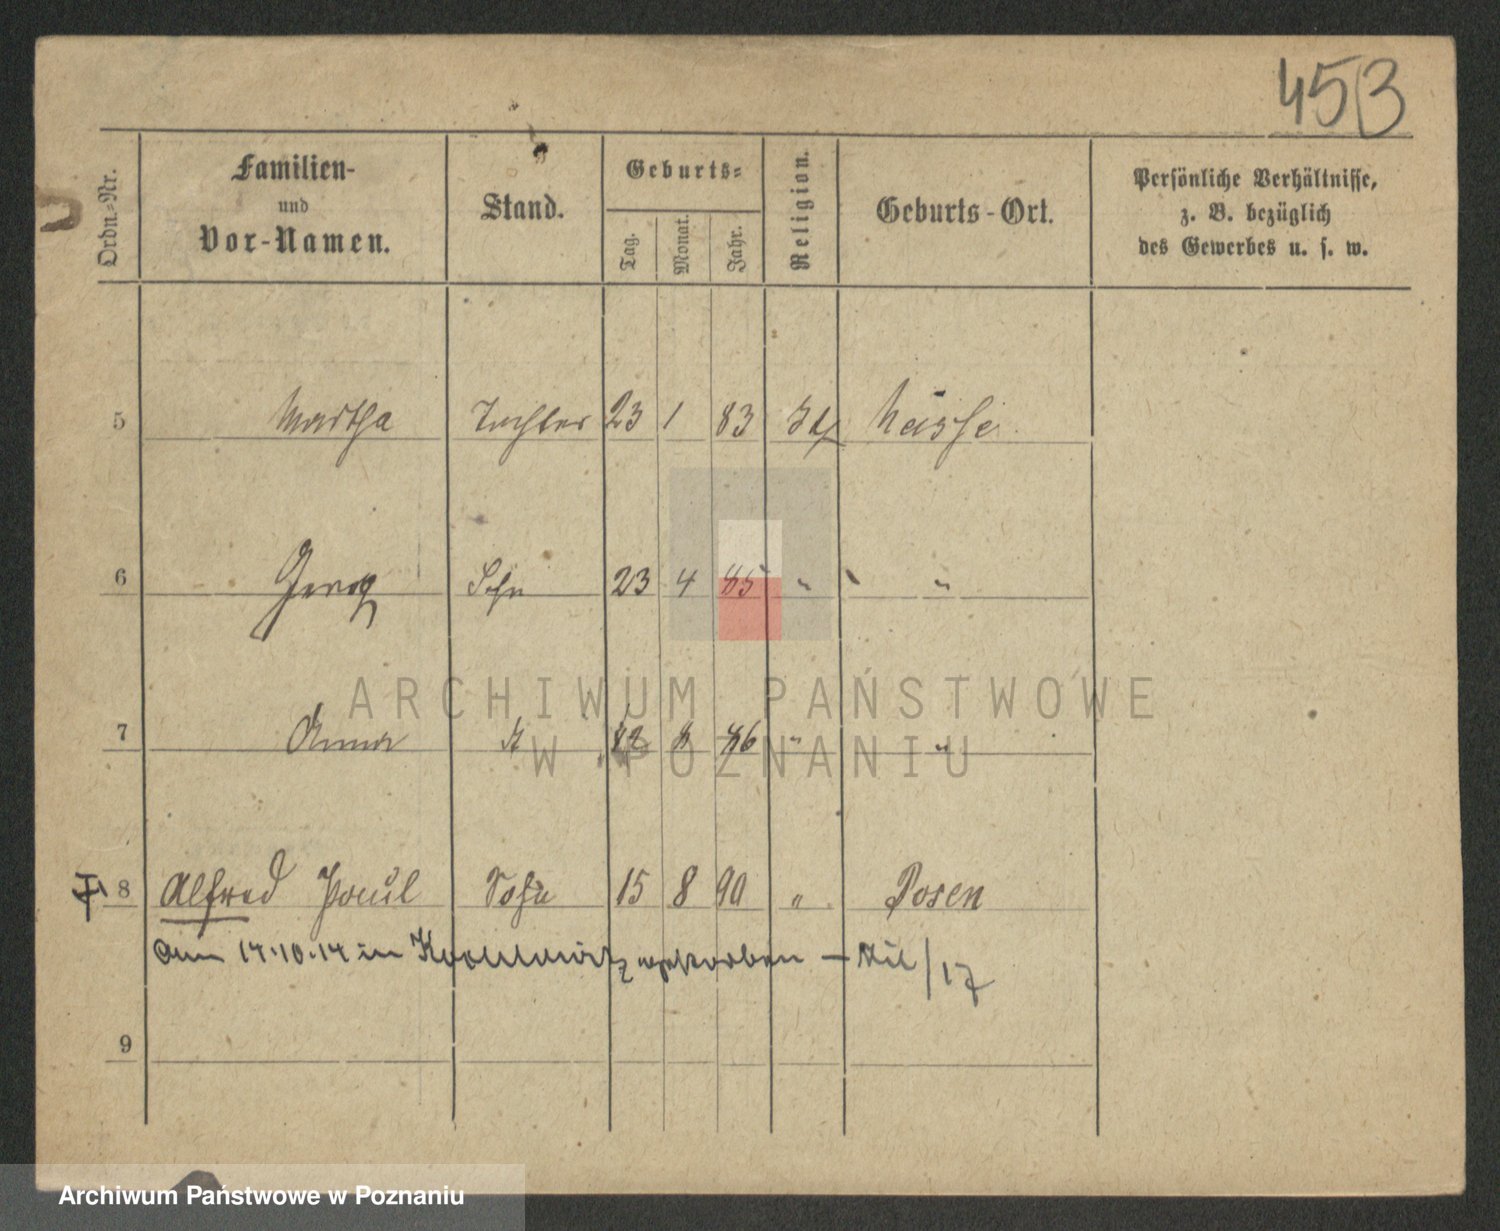 453
Ordn.-Nr.
Familien-
und
Vor-Namen.
Stand.
Geburts-
Tag.
Monat.
Jahr.
Religion.
Geburts-Ort.
Persönliche Verhältnisse,
z. B. bezüglich
des Gewerbes u. s. w.
5 Martha Tochter 23 1 83
6 Georg Sohn 23 4 85 " "
7 Anna 86 " "
8 Alfred Paul Sohn 15 8 90 " Posen
am 14.10.14 in gestorben —
9
ARCHIWUM PAŃSTWOWE
W POZNANIU
Archiwum Państwowe w Poznaniu